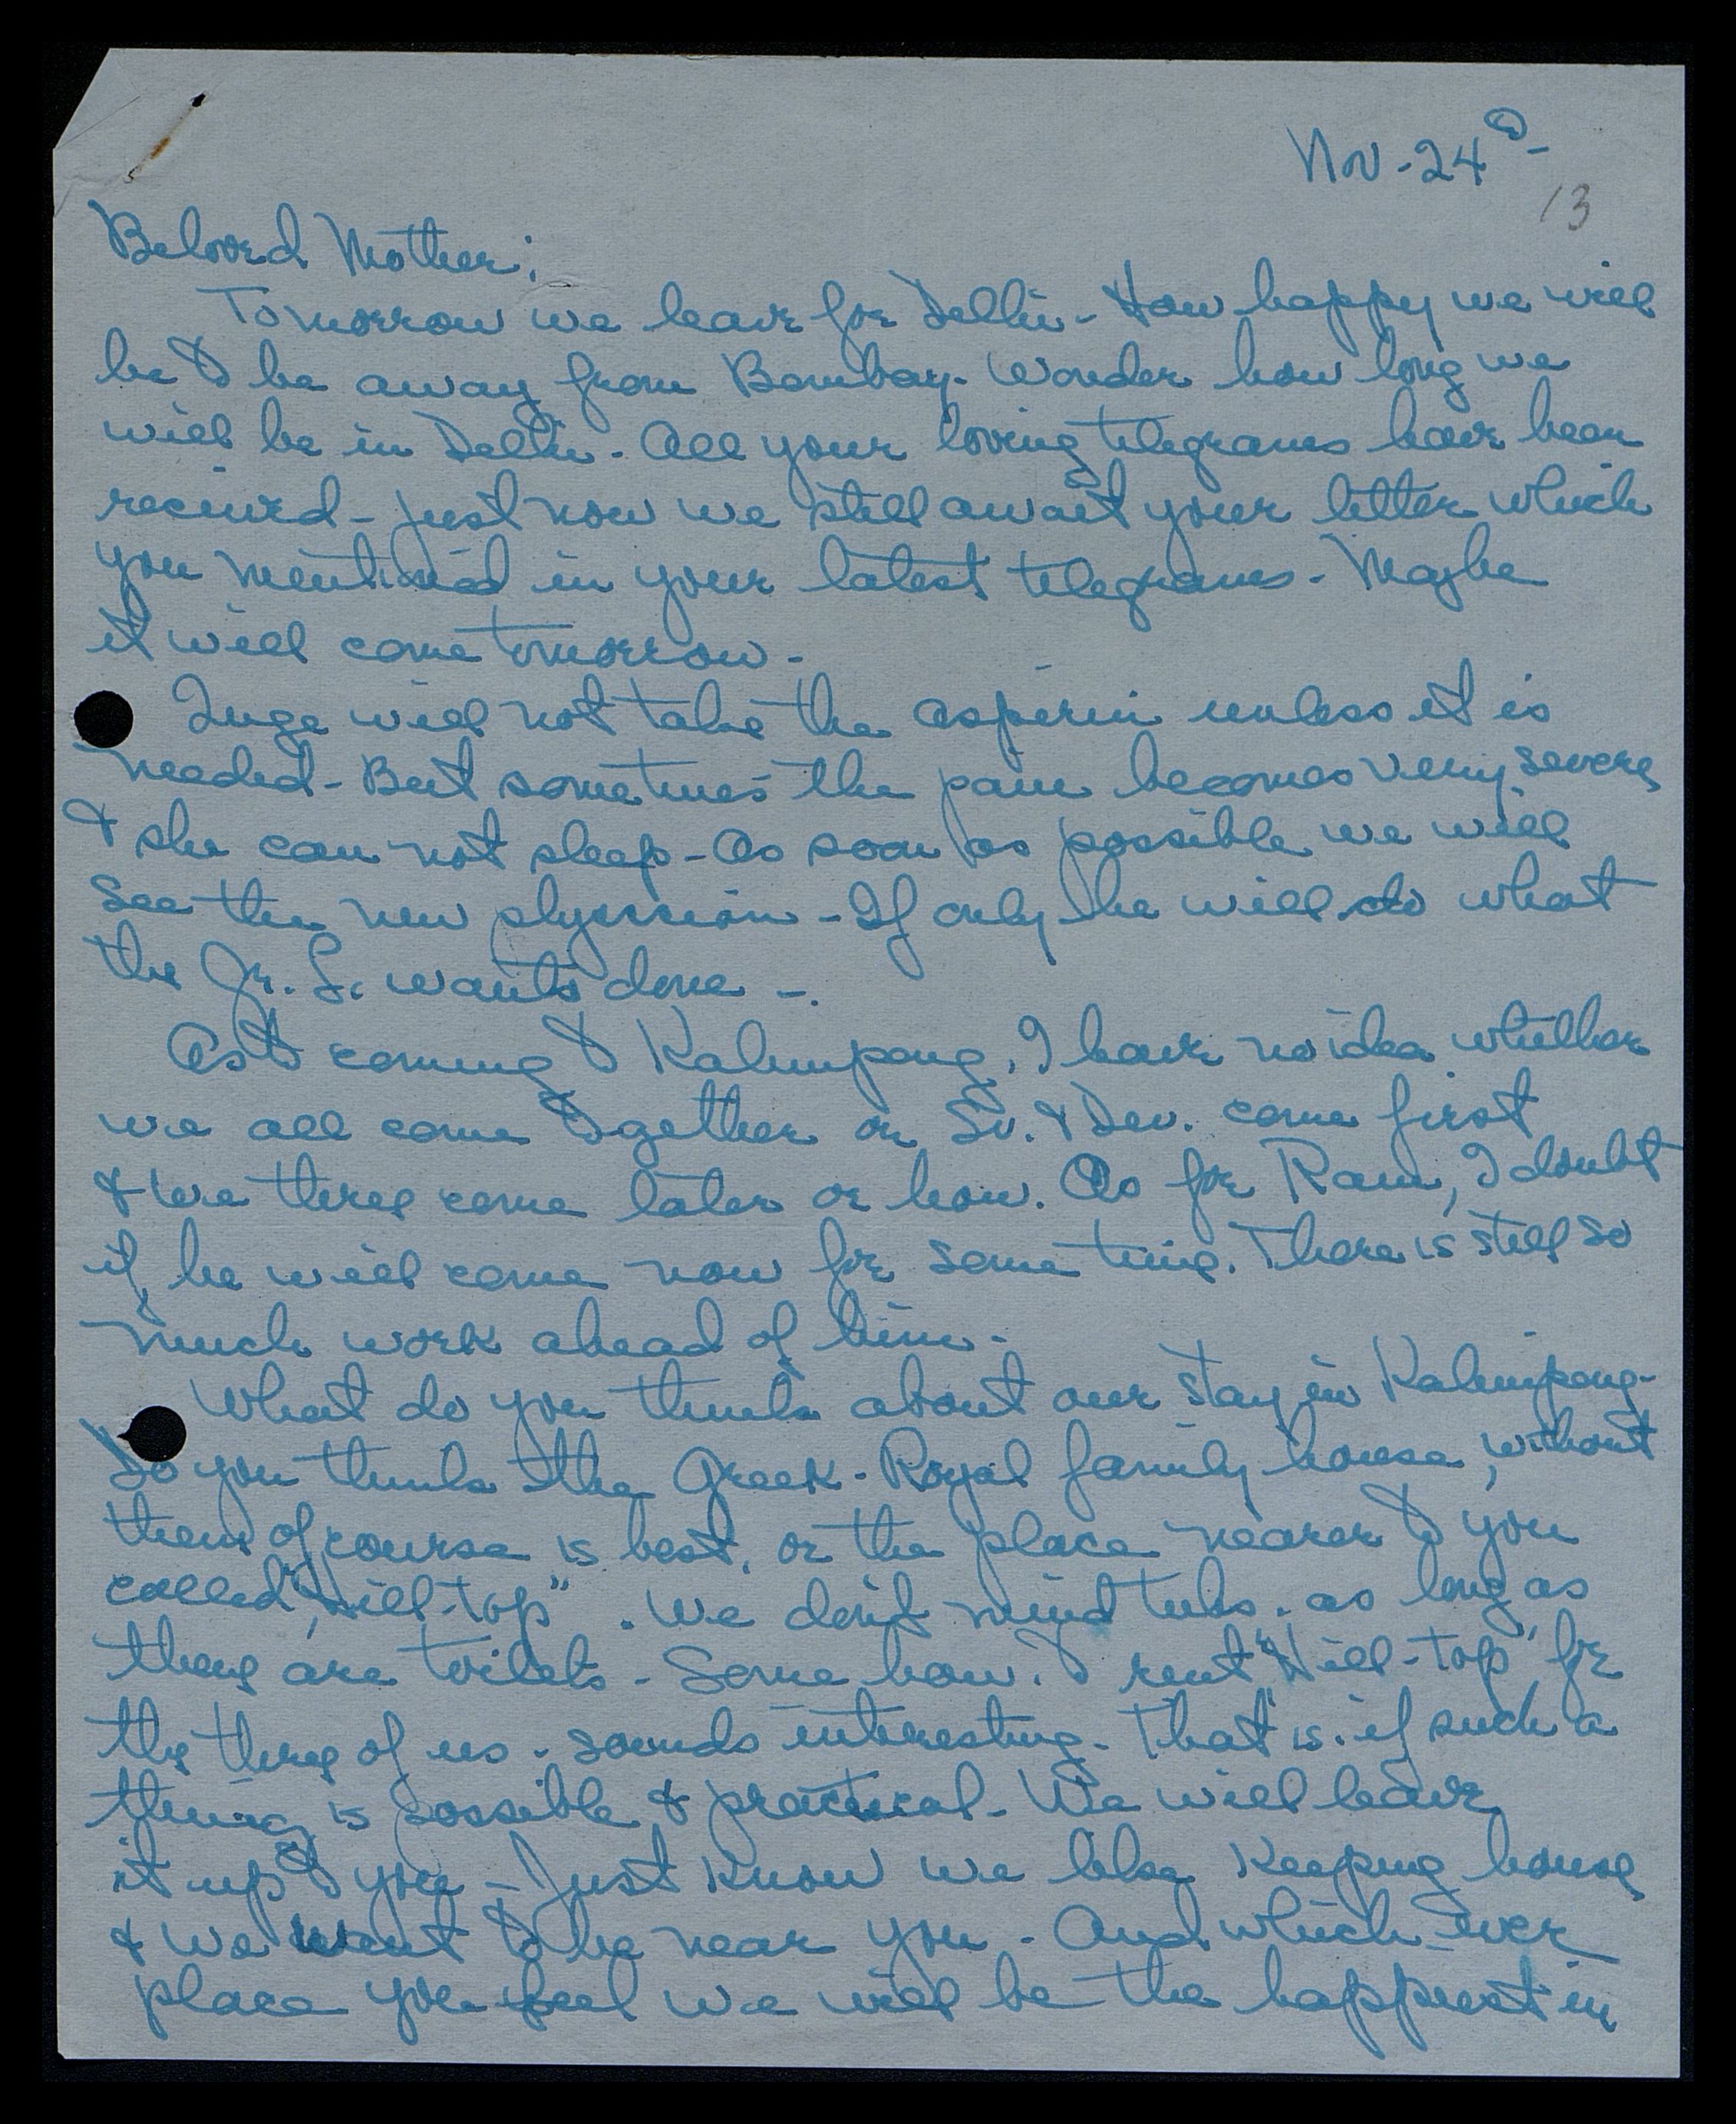 Nov. 24th -
13
Beloved Mother;
Tomorrow we leave for Delhi - How happy we will
be to be away from Bombay. Wonder how long we
will be in Delhi. All your loving telegrams have been
received - Just now we still await your letter which
you mentioned in your latest telegrams. Maybe
it will come tomorrow -
Inge will not take the aspirin unless it is
needed - But sometimes the pain becomes very severe
& she can not sleep - As soon as possible we will
see the new - If only he will do what
the wants done -.
As to coming to Kalimpong, I have no idea whether
we all come together or Sv. & Dev. come first
& we three come later or how. As for Ram, I doubt
if he will come now for some time. There is still so
much work ahead of him -
What do you think about our stay in Kalimpong -
Do you think the Greek - Royal family house, without
them of course is best, or the place nearer to you
called "Hill-top". We don't mind tubs. as long as
there are toilets - Some how. to rent "Hill-top" for
the three of us - sounds interesting. That is. if such a
thing is possible & practical - We will leave
it up to you - Just know we like keeping house
& we want to be near you - And which ever
place you feel we will be the happiest in